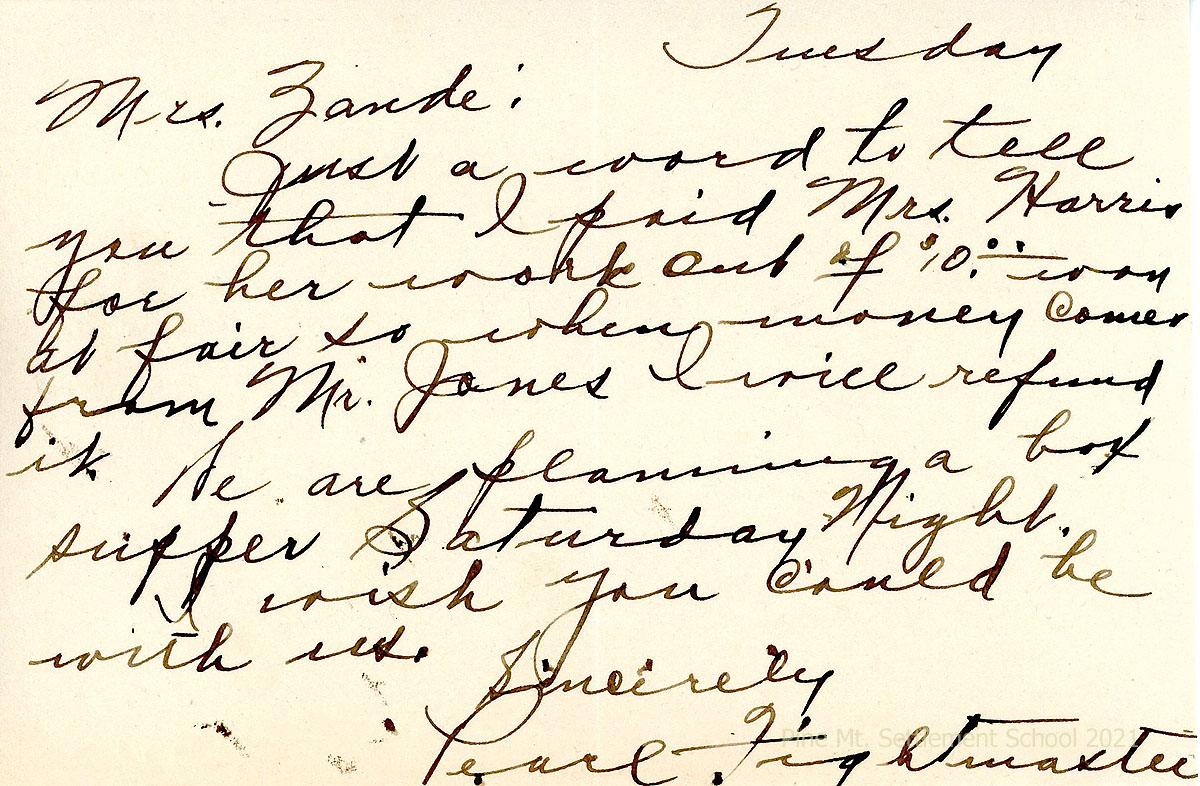 Tuesday
Mrs. Zande:
Just a word to tell
you that I paid Mrs. Harris
for her work out of $10.00 won
at fair so when money comes
from Mr. Jones I will refund
it. We are planning a box
supper Saturday Night.
I wish you could be
with us.
Sincerely
Pearl Fightmaster
Pine Mt. Settlement School 2021